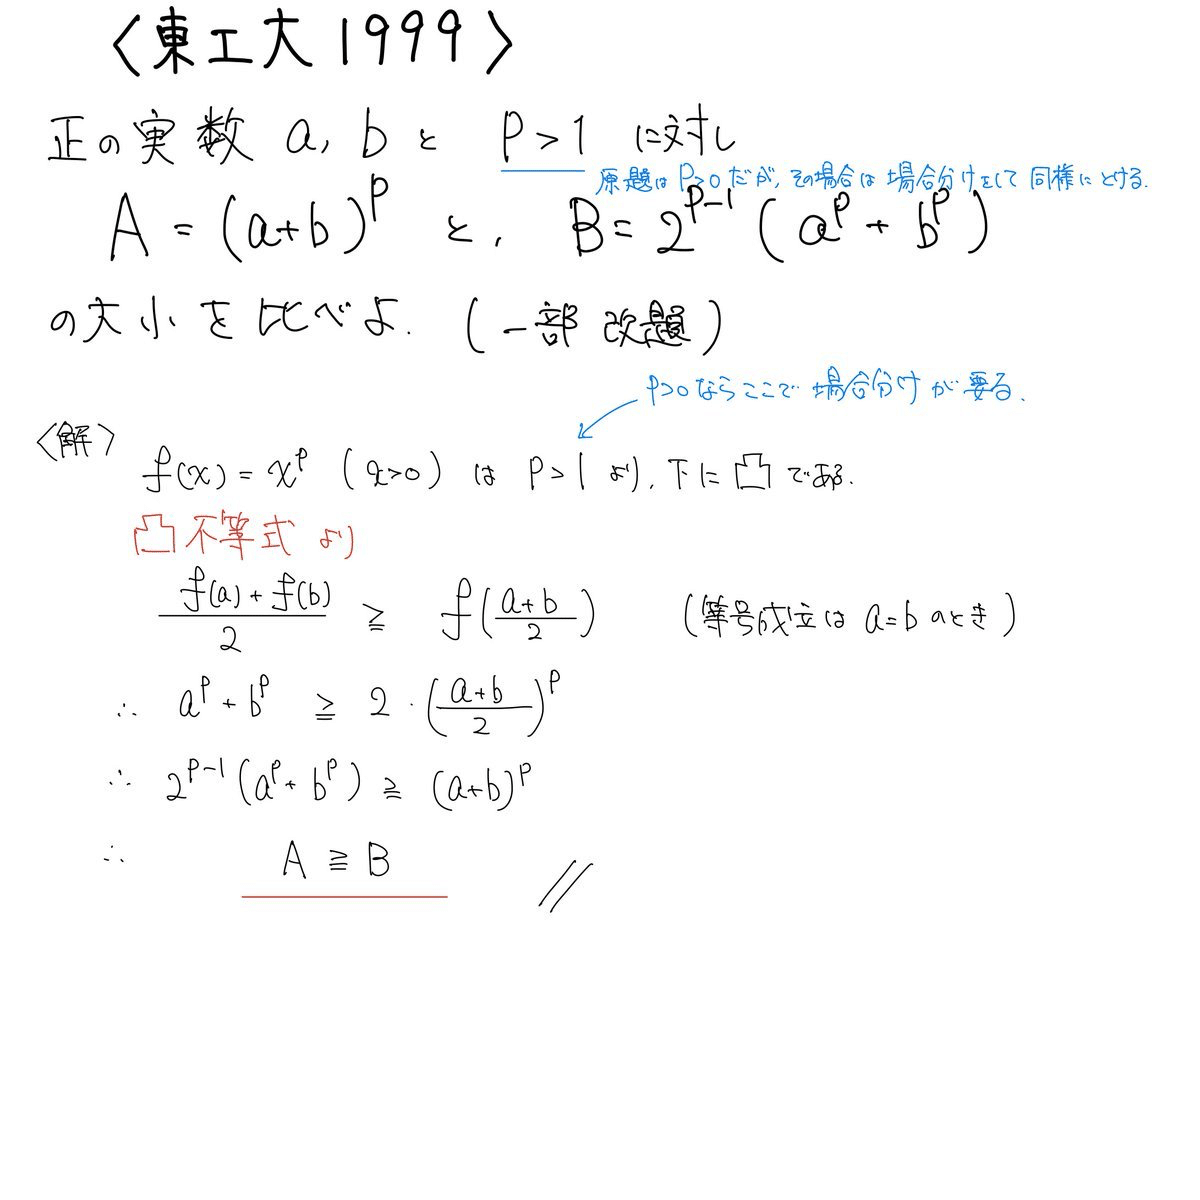 〈東工大1999〉
正の実数 a, b と p>1 に対し
原題は P>0 だが, その場合は 場合分けをして 同様にとける.
A = (a+b)^p と, B = 2^{p-1} (a^p + b^p)
の大小を比べよ. (一部改題)
p>0ならここで場合分けが要る.
〈解〉
f(x) = x^p (x>0) は p>1 より, 下に凸である.
凸不等式より
\frac{f(a)+f(b)}{2} ≧ f(\frac{a+b}{2}) (等号成立は a=b のとき)
∴ a^p + b^p ≧ 2・(\frac{a+b}{2})^p
∴ 2^{p-1}(a^p + b^p) ≧ (a+b)^p
∴ A ≧ B //